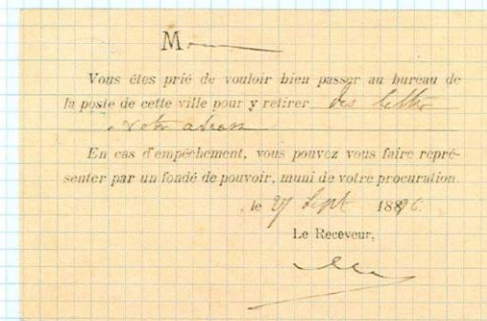 M
Vous êtes prié de vouloir bien passer au bureau de
la poste de cette ville pour y retirer des lettres
à votre adresse
En cas d'empêchement, vous pouvez vous faire repré-
senter par un fondé de pouvoir, muni de votre procuration.
le 27 Sept 1896
Le Receveur,